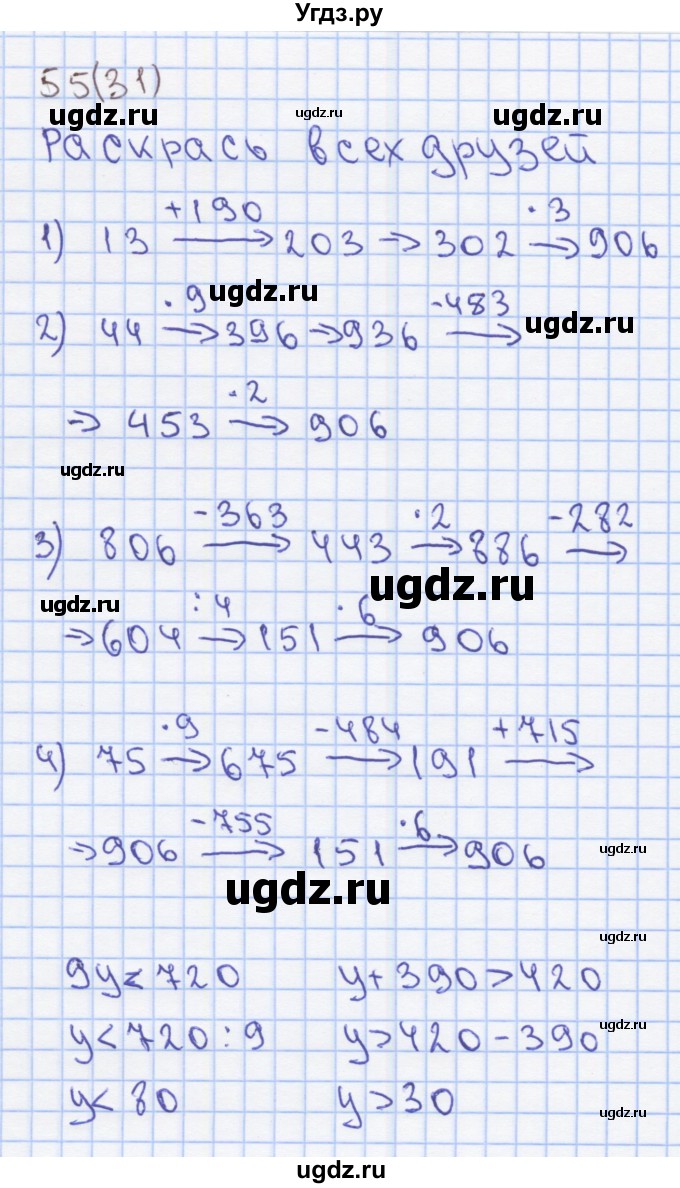 Угдз.ру
55(31)
ugdz.ru ugdz.ru ugdz.ru
Раскрась всех друзей
1) 13 +190→ 203 → 302 ·3→ 906
ugdz.ru
2) 44 ·9→ 396 → 936 -483→
ugdz.ru
→ 453 ·2→ 906
ugdz.ru
3) 806 -363→ 443 ·2→ 886 -282→
ugdz.ru
ugdz.ru
→ 604 :4→ 151 ·6→ 906
4) 75 ·9→ 675 -484→ 191 +715→
→ 906 -755→ 151 ·6→ 906
ugdz.ru
ugdz.ru
ugdz.ru
9y < 720 y + 390 > 420
ugdz.ru
y < 720 : 9 y > 420 - 390
y < 80 y > 30
ugdz.ru
ugdz.ru